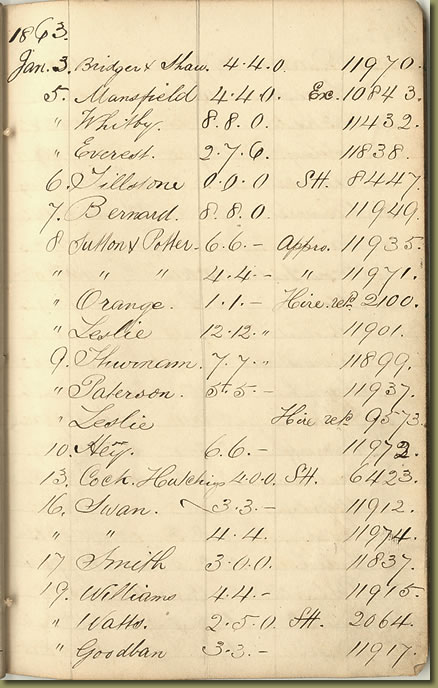 1863.
Jan. 3. Bridger & Shaw. 4.4.0. 11970.
5. Mansfield 4.4.0. Ex. 10843.
" Whitby. 8.8.0. 11432.
" Everest. 2.7.6. 11838.
6. Tillstone 0.0.0 SH. 8447.
7. Bernard. 8.8.0. 11949.
8 Sutton & Potter. 6.6.- Appro. 11935.
" " " 4.4.- " 11971.
" Orange. 1.1.- Hire. retd 2100.
" Leslie 12.12." 11901.
9. Thurnam. 7.7." 11899.
" Paterson. 5.5.- 11937.
" Leslie Hire retd 9573.
10. Hey. 6.6.- 11972.
13. Cock. Hutchings 4.0.0. SH. 6423.
16. Swan. 3.3.- 11912.
" " 4.4. 11974.
17 Smith 3.0.0. 11837.
19. Williams 4.4.- 11915.
" Watts. 2.5.0. SH. 2064.
" Goodban 3.3.- 11917.